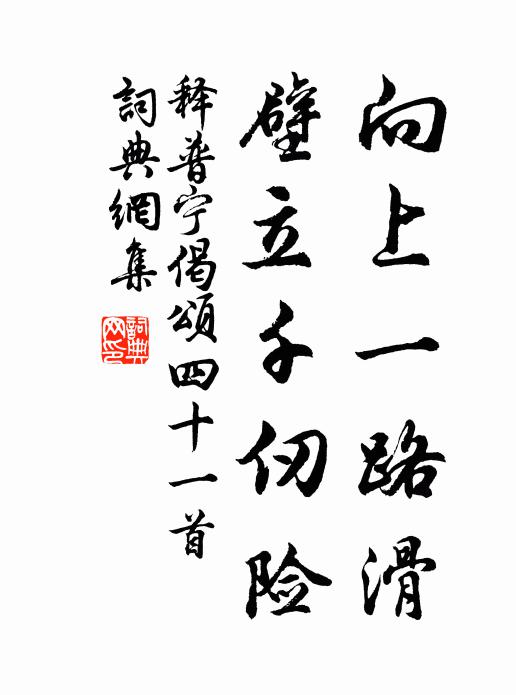 向上一路滑
壁立千仞险
释普宁偈颂四十一首
詞典網集
詞典网印